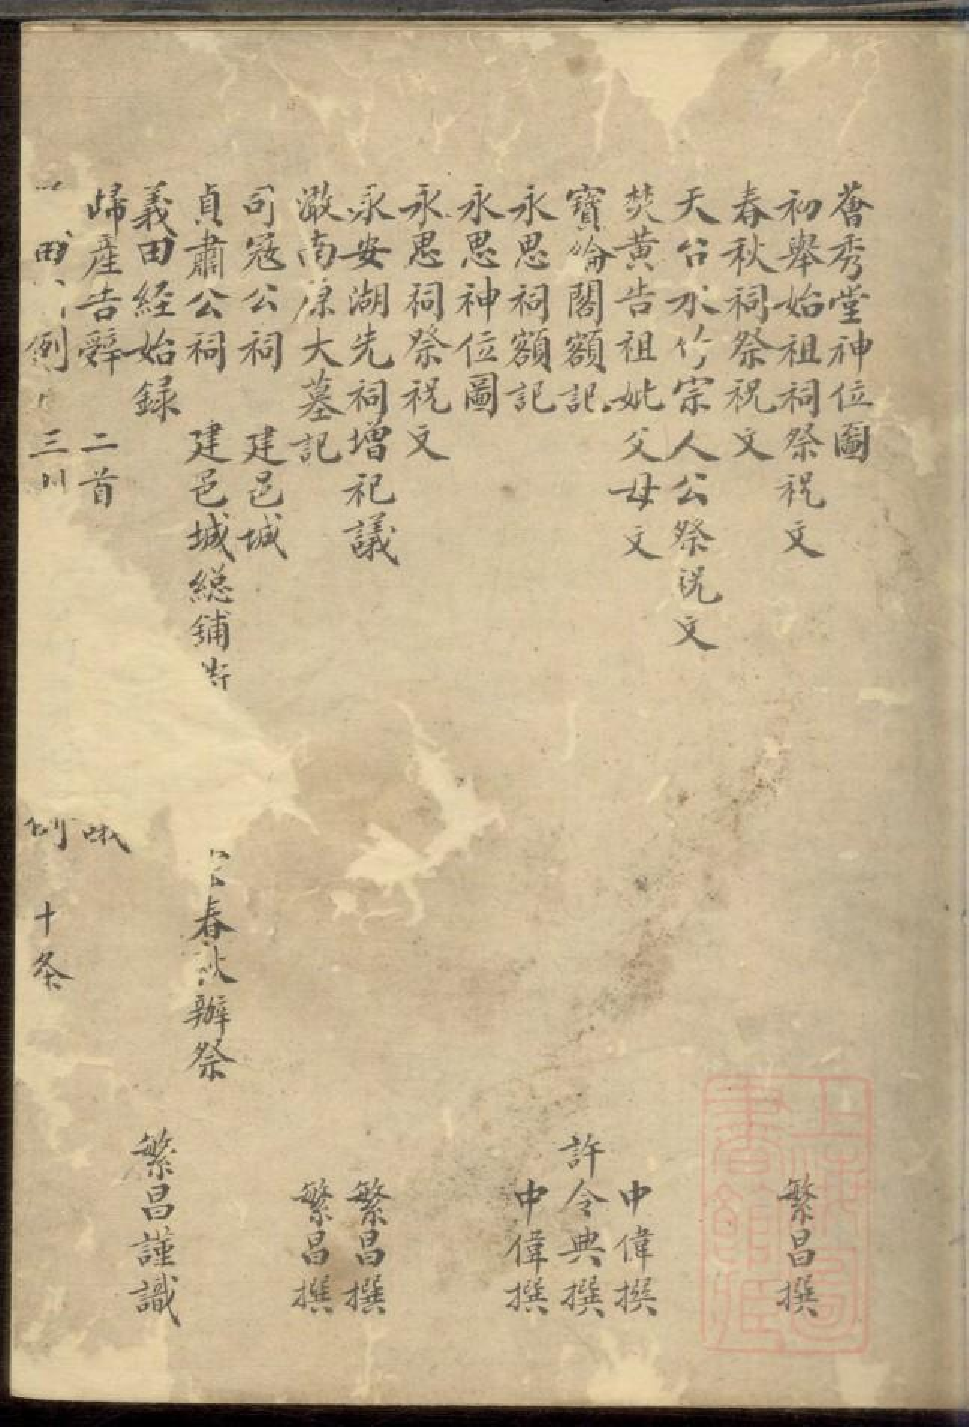 薈秀堂神位圖
初舉始祖祠祭祝文 繁昌撰
春秋祠祭祝文
天台水竹宗人公祭祝文
焚黃告祖妣父母文 中偉撰
寶綸閣額記 許令典撰
永思祠額記 中偉撰
永思神位圖
永思祠祭祝文
永安湖先祠增祀議 繁昌撰
澉南原大墓記 繁昌撰
司寇公祠 建邑城
貞肅公祠 建邑城總鋪 春秋辦祭
義田經始録 繁昌謹識
歸產告辭 二首
田 例 三 十条
上海圖書館藏